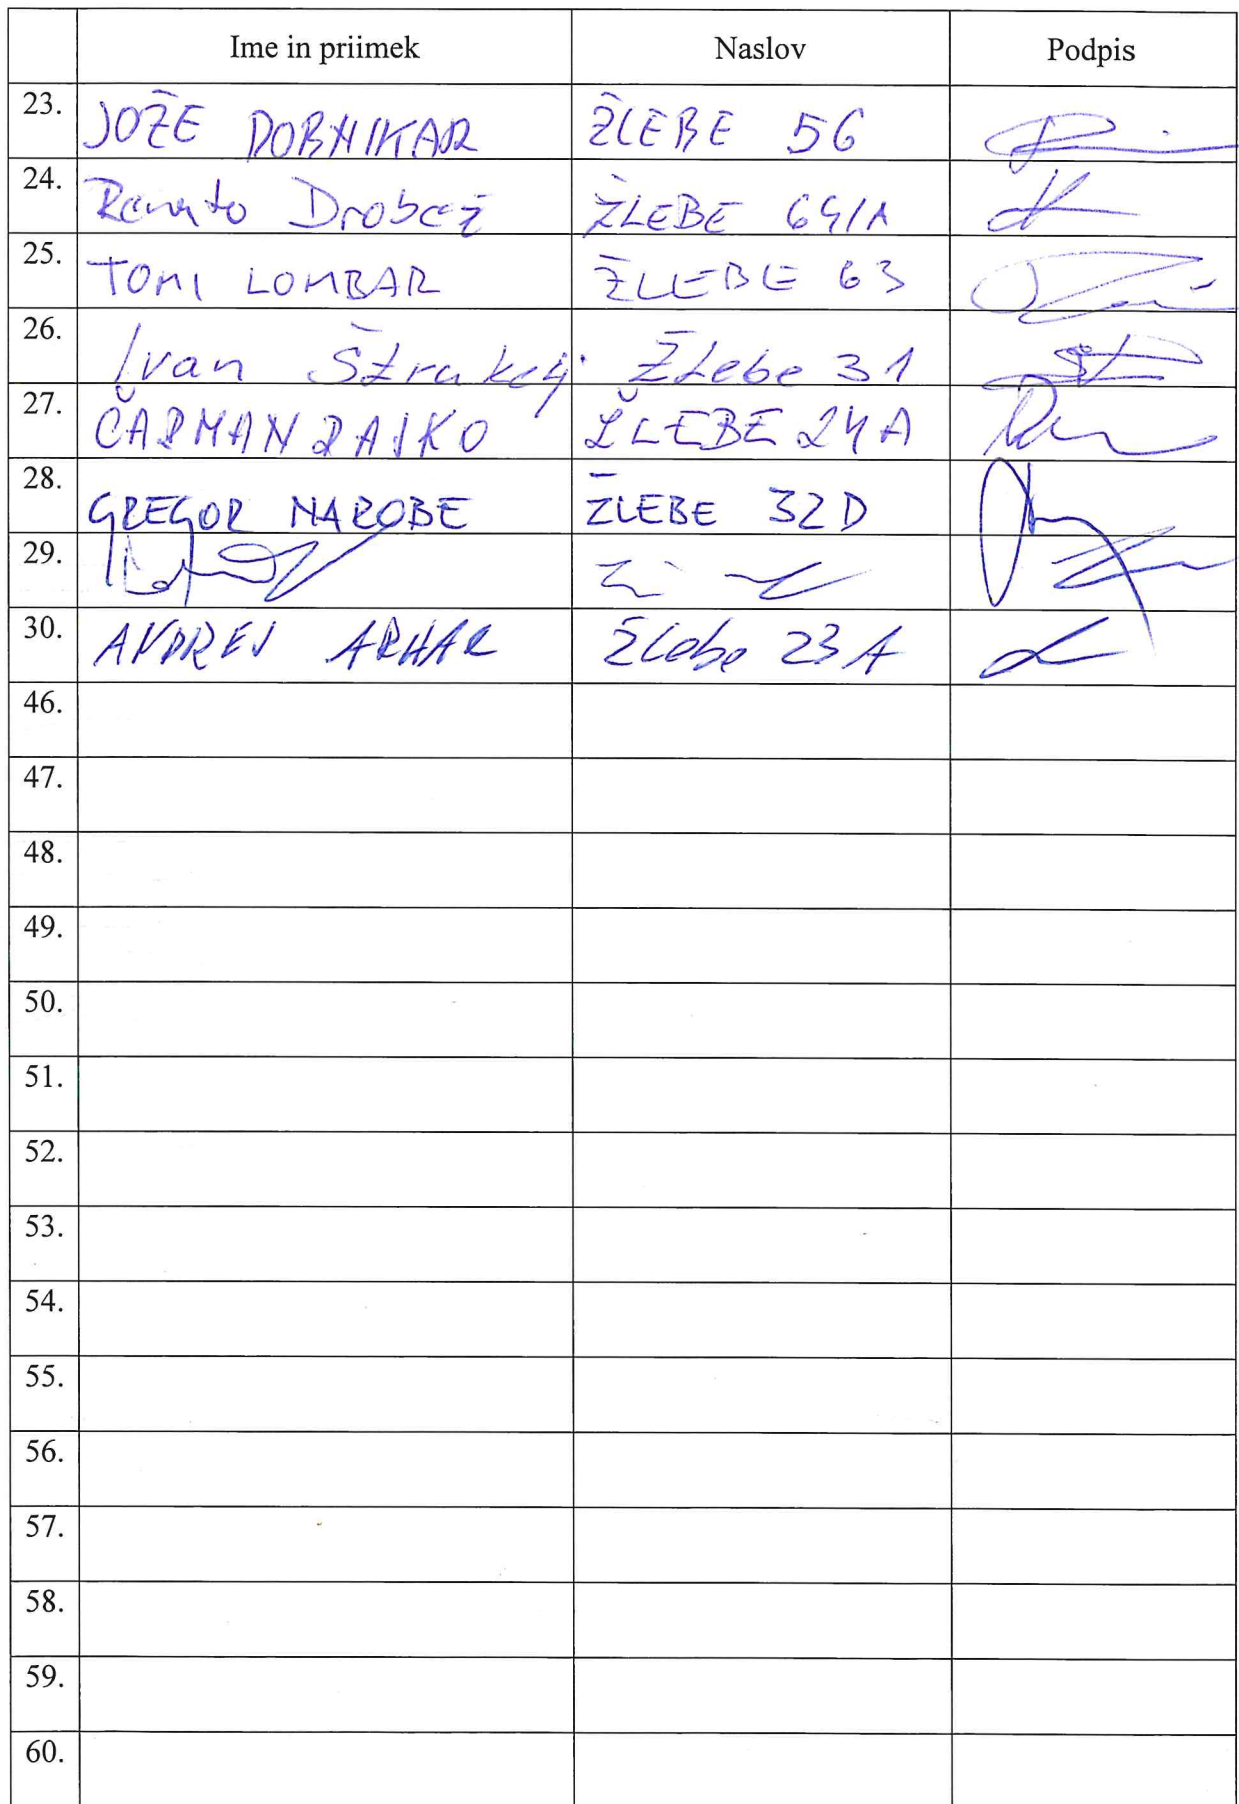 Ime in priimek Naslov Podpis
23. JOŽE DOBNIKAR ŽLEBE 56
24. Renato Drobež ŽLEBE 64/A
25. TOMI LOMBAR ŽLEBE 63
26. Ivan Štrukelj Žlebe 31
27. ČARMAN RAJKO ŽLEBE 24A
28. GREGOR NAROBE ŽLEBE 32D
29.
30. ANDREJ ARHAR Žlebe 23A
46.
47.
48.
49.
50.
51.
52.
53.
54.
55.
56.
57.
58.
59.
60.